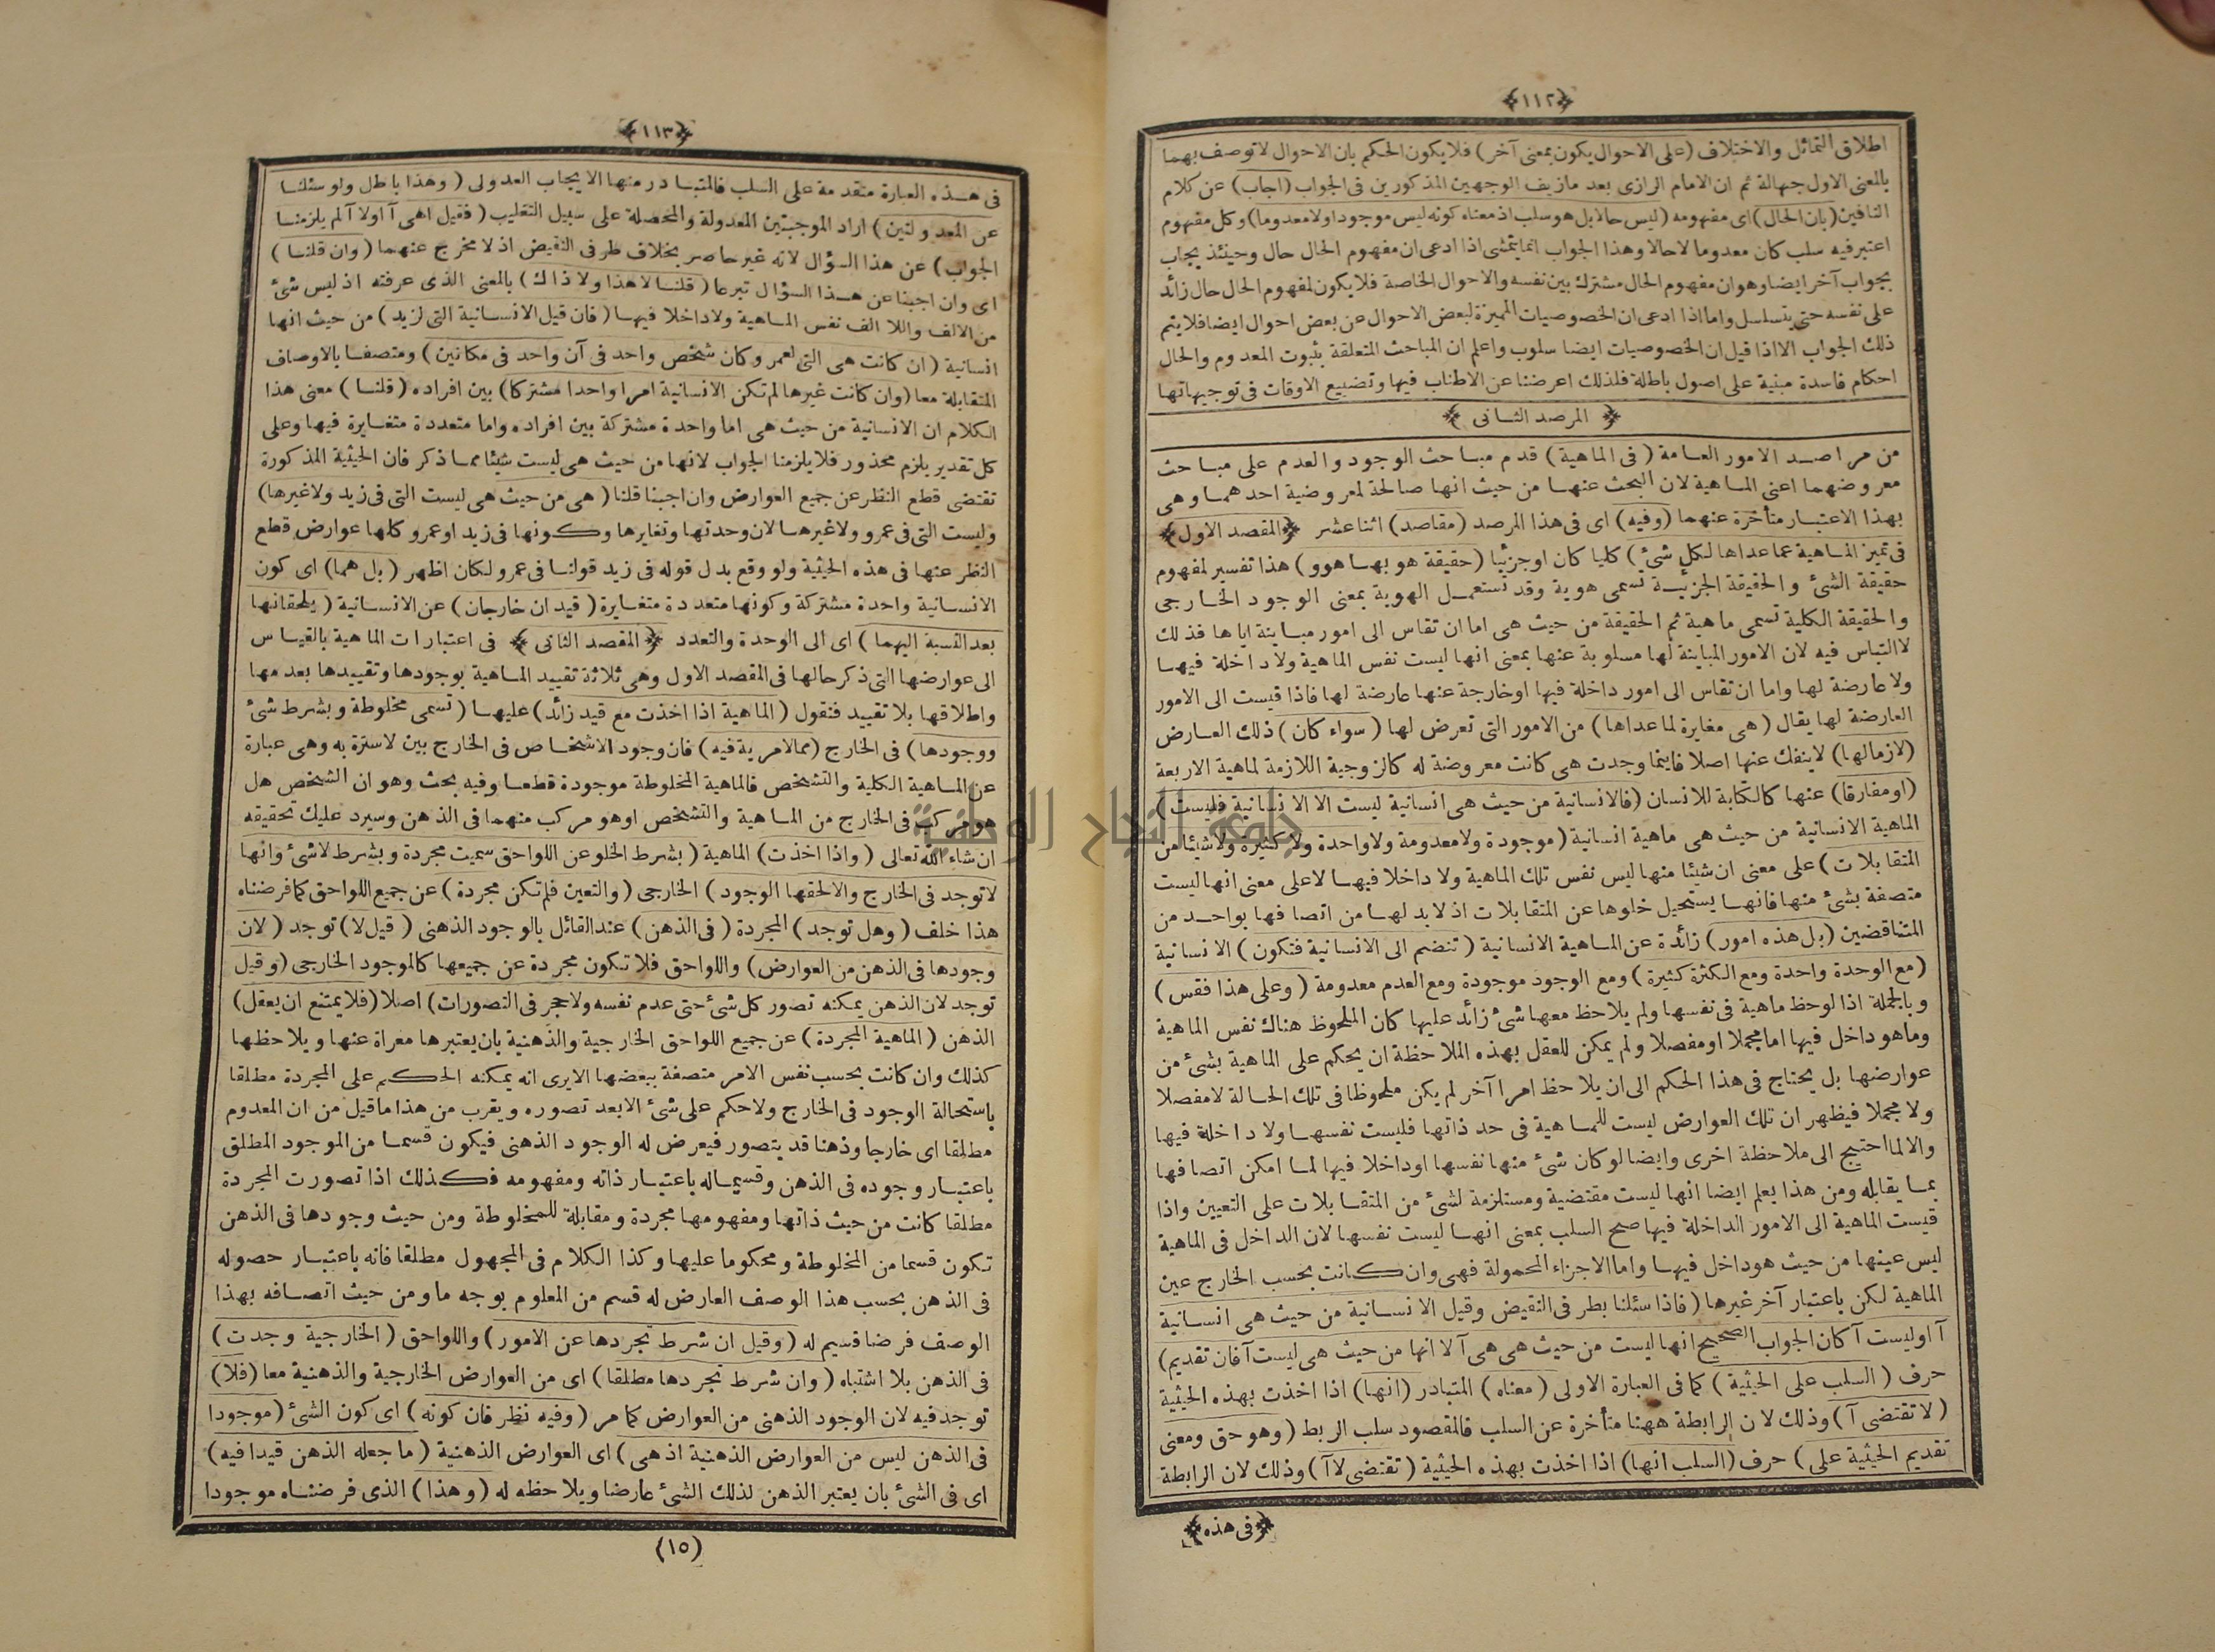 ﴿١١٢﴾
اطلاق التماثل والاختلاف (على الاحوال يكون بمعنى آخر) فلا يكون الحكم بان الاحوال لا توصف بهما
بالمعنى الاول جهالة ثم ان الامام الرازى بعد ما زيف الوجهين المذكورين فى الجواب (اجاب) عن كلام
النافين (بان الحال) اى مفهومه (ليس حالا بل هو سلب اذ معناه كونه ليس موجودا ولا معدوما) وكل مفهوم
اعتبر فيه سلب كان معدوما لا حالا وهذا الجواب انما يتمشى اذا ادعى ان مفهوم الحال حال وحينئذ يجاب
بجواب آخر ايضا وهو ان مفهوم الحال مشترك بين نفسه والاحوال الخاصة فلا يكون لمفهوم الحال حال زائد
على نفسه حتى يتسلسل واما اذا ادعى ان الخصوصيات المميزة لبعض الاحوال عن بعض احوال ايضا فلا يتم
ذلك الجواب الا اذا قيل ان الخصوصيات ايضا سلوب واعلم ان المباحث المتعلقة بثبوت المعدوم والحال
احكام فاسدة مبنية على اصول باطلة فلذلك اعرضنا عن الاطناب فيها وتضييع الاوقات فى توجيهاتها
﴿ المرصد الثانى ﴾
من مراصد الامور العامة (فى الماهية) قدم مباحث الوجود والعدم على مباحث
معروضهما اعنى الماهية لان البحث عنها من حيث انها صالحة لمعروضية احدهما وهى
بهذا الاعتبار متأخرة عنهما (وفيه) اى فى هذا المرصد (مقاصد) اثنا عشر ﴿المقصد الاول﴾
فى تميز الماهية عما عداها لكل شئ) كليا كان او جزئيا (حقيقة هو بها هو و) هذا تفسير لمفهوم
حقيقة الشئ والحقيقة الجزئية تسمى هوية وقد تستعمل الهوية بمعنى الوجود الخارجى
والحقيقة الكلية تسمى ماهية ثم الحقيقة من حيث هى اما ان تقاس الى امور مباينة اياها فذلك
لا التباس فيه لان الامور المباينة لها مسلوبة عنها بمعنى انها ليست نفس الماهية ولا داخلة فيها
ولا عارضة لها واما ان تقاس الى امور داخلة فيها او خارجة عنها عارضة لها فاذا قيست الى الامور
العارضة لها يقال (هى مغايرة لما عداها) من الامور التى تعرض لها (سواء كان) ذلك العارض
(لازما لها) لا ينفك عنها اصلا فاينما وجدت هى كانت معروضة له كالزوجية اللازمة لماهية الاربعة
(او مفارقا) عنها كالكتابة للانسان (فالانسانية من حيث هى انسانية ليست الا الانسانية فليست)
الماهية الانسانية من حيث هى ماهية انسانية (موجودة ولا معدومة ولا واحدة ولا كثيرة ولا شيئا من
المتقابلات) على معنى ان شيئا منها ليس نفس تلك الماهية ولا داخلا فيها لا على معنى انها ليست
متصفة بشئ منها فانها يستحيل خلوها عن المتقابلات اذ لا بد لها من اتصافها بواحد من
المتناقضين (بل هذه امور) زائدة عن الماهية الانسانية (تنضم الى الانسانية فتكون) الانسانية
(مع الوحدة واحدة ومع الكثرة كثيرة) ومع الوجود موجودة ومع العدم معدومة (وعلى هذا فقس)
وبالجملة اذا لوحظ ماهية فى نفسها ولم يلاحظ معها شئ زائد عليها كان الملحوظ هناك نفس الماهية
وما هو داخل فيها اما مجملا او مفصلا ولم يمكن للعقل بهذه الملاحظة ان يحكم على الماهية بشئ من
عوارضها بل يحتاج فى هذا الحكم الى ان يلاحظ امرا آخر لم يكن ملحوظا فى تلك الحالة لا مفصلا
ولا مجملا فيظهر ان تلك العوارض ليست للماهية فى حد ذاتها فليست نفسها ولا داخلة فيها
والا لما احتيج الى ملاحظة اخرى وايضا لو كان شئ منها نفسها او داخلا فيها لما امكن اتصافها
بما يقابله ومن هذا يعلم ايضا انها ليست مقتضية ومستلزمة لشئ من المتقابلات على التعيين واذا
قيست الماهية الى الامور الداخلة فيها صح السلب بمعنى انها ليست نفسها لان الداخل فى الماهية
ليس عينها من حيث هو داخل فيها واما الاجزاء المحمولة فهى وان كانت بحسب الخارج عين
الماهية لكن باعتبار آخر غيرها (فاذا سئلنا بطرفى النقيض وقيل الانسانية من حيث هى انسانية
آ او ليست آ كان الجواب الصحيح انها ليست من حيث هى هى آ لا انها من حيث هى ليست آ فان تقديم)
حرف (السلب على الحيثية) كما فى العبارة الاولى (معناه) المتبادر (انها) اذا اخذت بهذه الحيثية
(لا تقتضى آ) وذلك لان الرابطة ههنا متأخرة عن السلب فالمقصود سلب الربط (وهو حق ومعنى
تقديم الحيثية على) حرف (السلب انها) اذا اخذت بهذه الحيثية (تقتضى لا آ) وذلك لان الرابطة
﴿فى هذه﴾
﴿١١٣﴾
فى هذه العبارة متقدمة على السلب فالمتبادر منها الايجاب العدولى (وهذا باطل ولو سئلنا
عن المعدولتين) اراد الموجبتين المعدولة والمحصلة على سبيل التغليب (فقيل اهى آ او لا آ لم يلزمنا
الجواب) عن هذا السؤال لانه غير حاصر بخلاف طرفى النقيض اذ لا مخرج عنهما (وان قلنا)
اى وان اجبنا عن هذا السؤال تبرعا (قلنا لا هذا ولا ذاك) بالمعنى الذى عرفته اذ ليس شئ
من الالف واللا الف نفس الماهية ولا داخلا فيها (فان قيل الانسانية التى لزيد) من حيث انها
انسانية (ان كانت هى التى لعمرو كان شخص واحد فى آن واحد فى مكانين) ومتصفا بالاوصاف
المتقابلة معا (وان كانت غيرها لم تكن الانسانية امرا واحدا مشتركا) بين افراده (قلنا) معنى هذا
الكلام ان الانسانية من حيث هى اما واحدة مشتركة بين افراده واما متعددة متغايرة فيها وعلى
كل تقدير يلزم محذور فلا يلزمنا الجواب لانها من حيث هى ليست شيئا مما ذكر فان الحيثية المذكورة
تقتضى قطع النظر عن جميع العوارض وان اجبنا قلنا (هى من حيث هى ليست التى فى زيد ولا غيرها)
وليست التى فى عمرو ولا غيرها لان وحدتها وتغايرها وكونها فى زيد او عمرو كلها عوارض قطع
النظر عنها فى هذه الحيثية ولو وقع بدل قوله فى زيد قولنا فى عمرو لكان اظهر (بل هما) اى كون
الانسانية واحدة مشتركة وكونها متعددة متغايرة (قيدان خارجان) عن الانسانية (يلحقانها
بعد النسبة اليهما) اى الى الوحدة والتعدد ﴿المقصد الثانى﴾ فى اعتبارات الماهية بالقياس
الى عوارضها التى ذكر حالها فى المقصد الاول وهى ثلاثة تقييد الماهية بوجودها وتقييدها بعدمها
واطلاقها بلا تقييد فنقول (الماهية اذا اخذت مع قيد زائد) عليها (تسمى مخلوطة وبشرط شئ
ووجودها) فى الخارج (مما لا مرية فيه) فان وجود الاشخاص فى الخارج بين لا سترة به وهى عبارة
عن الماهية الكلية والتشخص فالماهية المخلوطة موجودة قطعا وفيه بحث وهو ان الشخص هل
هو مركب فى الخارج من الماهية والتشخص او هو مركب منهما فى الذهن وسيرد عليك تحقيقه
ان شاء الله تعالى (واذا اخذت) الماهية (بشرط الخلو عن اللواحق سميت مجردة وبشرط لا شئ وانها
لا توجد فى الخارج والا لحقها الوجود) الخارجى (والتعين فلم تكن مجردة) عن جميع اللواحق كما فرضناه
هذا خلف (وهل توجد) المجردة (فى الذهن) عند القائل بالوجود الذهنى (قيل لا) توجد (لان
وجودها فى الذهن من العوارض) واللواحق فلا تكون مجردة عن جميعها كالموجود الخارجى (وقيل
توجد لان الذهن يمكنه تصور كل شئ حتى عدم نفسه ولا حجر فى التصورات) اصلا (فلا يمتنع ان يعقل)
الذهن (الماهية المجردة) عن جميع اللواحق الخارجية والذهنية بان يعتبرها معراة عنها ويلاحظها
كذلك وان كانت بحسب نفس الامر متصفة ببعضها الا يرى انه يمكنه الحكم على المجردة مطلقا
باستحالة الوجود فى الخارج ولا حكم على شئ الا بعد تصوره ويقرب من هذا ما قيل من ان المعدوم
مطلقا اى خارجا وذهنا قد يتصور فيعرض له الوجود الذهنى فيكون قسما من الموجود المطلق
باعتبار وجوده فى الذهن وقسيما له باعتبار ذاته ومفهومه فكذلك اذا تصورت المجردة
مطلقا كانت من حيث ذاتها ومفهومها مجردة ومقابلة للمخلوطة ومن حيث وجودها فى الذهن
تكون قسما من المخلوطة ومحكوما عليها وكذا الكلام فى المجهول مطلقا فانه باعتبار حصوله
فى الذهن بحسب هذا الوصف العارض له قسم من المعلوم بوجه ما ومن حيث اتصافه بهذا
الوصف فرضا قسيم له (وقيل ان شرط تجردها عن الامور) واللواحق (الخارجية وجدت)
فى الذهن بلا اشتباه (وان شرط تجردها مطلقا) اى من العوارض الخارجية والذهنية معا (فلا)
توجد فيه لان الوجود الذهنى من العوارض كما مر (وفيه نظر فان كونه) اى كون الشئ (موجودا
فى الذهن ليس من العوارض الذهنية اذ هى) اى العوارض الذهنية (ما جعله الذهن قيدا فيه)
اى فى الشئ بان يعتبر الذهن لذلك الشئ عارضا ويلاحظه له (وهذا) الذى فرضناه موجودا
(١٥)
جامعة النجاح الوطنية